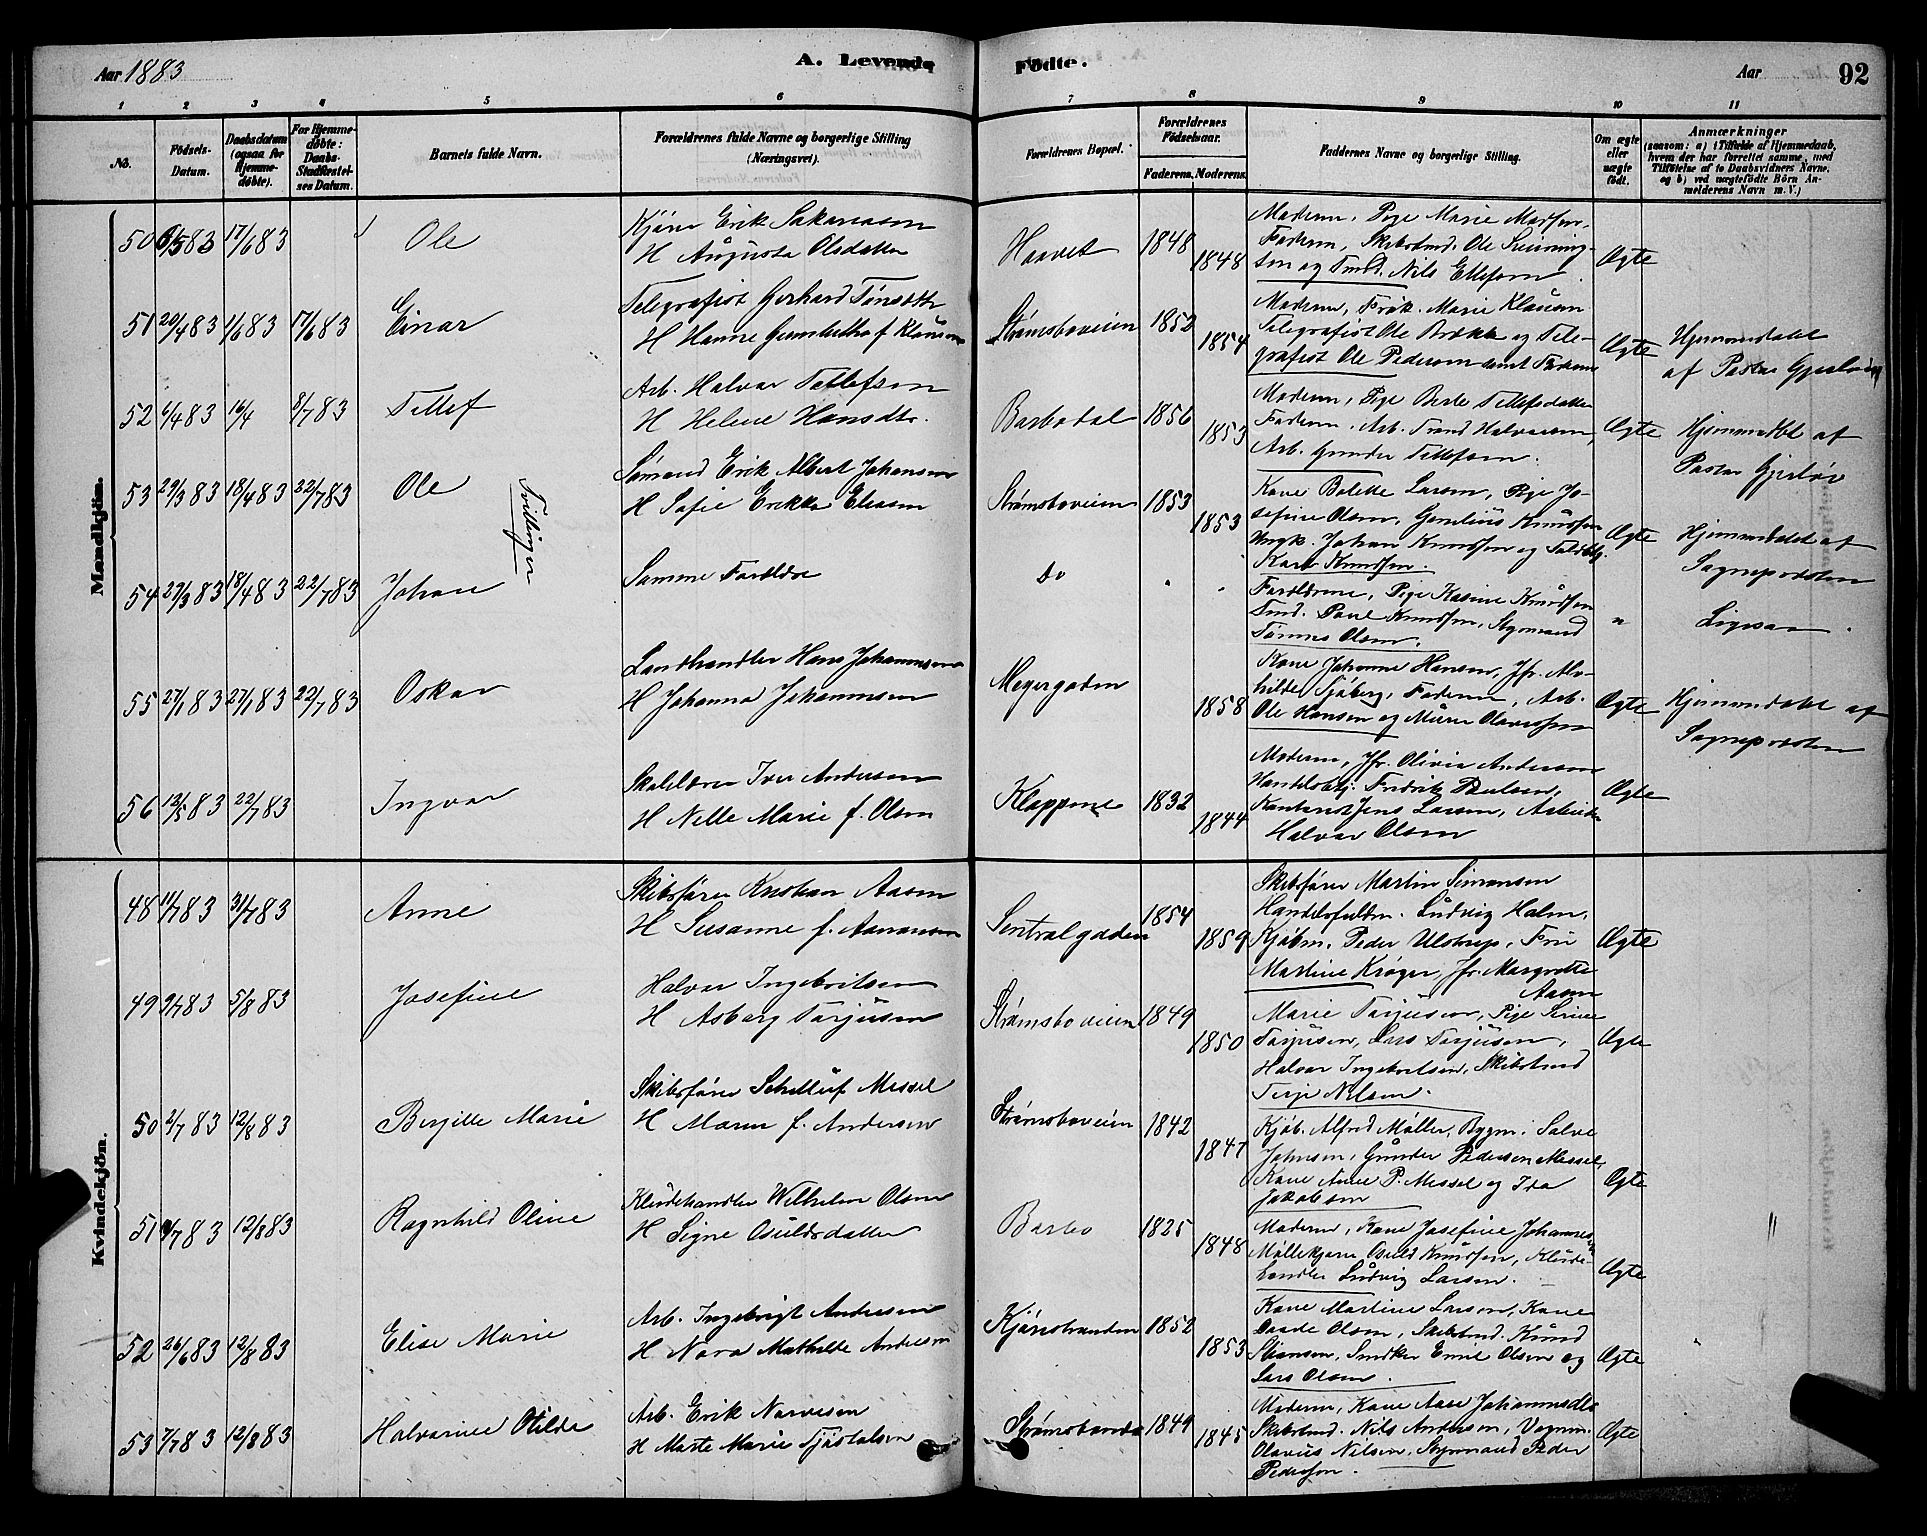 Aar 1883 A. Levende Fødte. Aar 92
1 2 3 4 5 6 7 8 9 10 11
No.
Fødsels-Datum.
Daabsdatum (ogsaa for Hjemme-døbte).
For Hjemme-døbte: Daabs-Stadfæstel-ses Datum.
Barnets fulde Navn.
Forældrenes fulde Navne og borgerlige Stilling (Næringsvei).
Forældrenes Bopæl.
Forældrenes Fødselsaar. Faderens. Moderens.
Faddernes Navne og borgerlige Stilling.
Om ægte eller uægte født.
Anmærkninger (saasom: a) i Tilfælde af Hjemmedaab, hvem der har forrettet samme, med Tilføielse af to Daabsvidners Navne, og b) ved uægtefødte Børn An-melderens Navn m. V.)
Mandkjön.
50 6/5 83 17/6 83 Ole
Erik Sakariasen
H Augusta Olsdatter
Haavet 1848 1848
Moderen, Pige Marie Madsen,
Faderen, Skibstmd. Ole
og Tmd. Nils Ellefsen
Ægte
51 20/4 83 1/6 83 17/6 83 Einar
Telegrafist Gerhard
H Hanne f. Klausen
Strømsboveien 1852 1854
Moderen, Frøk. Marie Klausen
Telegrafist Ole Brække og Tele-
grafist Ole Pedersen samt Faderen
Ægte
Hjemmedøbt
af Pastor Gjerløw
52 6/4 83 16/4 8/7 83 Tellef
Arb. Halvor Tellefsen
H Helene Hansdtr.
Barbodal 1856 1853
Moderen, Pige Berte Tellefsdatter
Faderen, Arb. Trond Halvorsen,
Arb. Gunder Tellefsen.
Ægte
Hjemmedøbt af
Pastor Gjerløv
53 29/3 83 18/4 83 22/7 83 Ole
Tvillinger
Sømand Erik Albert Johansen
H Sofie Erikka Eliasen
Strømsboveien 1853 1853
Kone Bolette Larsen, Pige Jo-
sefine Olsen, Knudsen
Ungk. Johan Knudsen og
Karl Knudsen.
Ægte
Hjemmedøbt af
Sogneprosten
54 29/3 83 18/4 83 22/7 83 Johan
Samme Forældre
Do " "
Forældrene, Pige Kasine Knudsen
Tmd. Paul Knudsen, Styrmand
Tønnes Olsen.
"
Ligesaa.
55 27/1 83 27/1 83 22/7 83 Oskar
Landhandler Hans Johannesen
H Johanna Johannesen
Meyergaden 1858
Kone Johanne Hansen, Jfr. Alv-
hilde Sjøberg, Faderen, Arb.
Ole Hansen og Murer Olavesen
Ægte
Hjemmedøbt af
Sogneprosten
56 12/5 83 22/7 83 Ingvar
Skolelærer Iver Andersen
H Nelle Marie f. Olsen
Kloppene 1832 1844
Moderen, Jfr. Olivia Andersen
Handelsbtj. Fredrik Paulsen,
Kontorist Jens Larsen, Arbeider
Halvor Olsen
Ægte
Kvindekjön.
48 11/7 83 31/7 83 Anne
Skibsfører Kristian Aasen
H Susanne f. Aanonsen
Sentralgaden 1854 1859
Skibsfører Martin Simonsen
Handelsfuldm. Ludvig Holm,
Kjøbm. Peder Ulstrup, Fru
Martine Krøger, Jfr. Margrethe
Aasen
Ægte
49 9/7 83 5/8 83 Josefine
Halvor Ingebritsen
H Asborg Tarjusen
Strømsboveien 1849 1850
Marie Tarjusen, Pige Sirine
Tarjusen, Lars Tarjusen,
Halvor Ingebritsen, Skibstmd
Terje Nilsen.
Ægte
50 2/7 83 12/8 83 Bergitte Marie
Skibsfører Messel
H Maren f. Andersen
Strømsboveien 1842 1847
Kjøb. Alfred Møller, Bygm. Salve
Johnsen, Gunder Pedersen Messel,
Kone Anne P. Messel og Ida
Jakobsen
Ægte
51 9/7 83 12/8 83 Ragnhild Oline
Kludehandler Wilhelm Olsen
H Signe Osuldsdatter
Barbo 1825 1848
Moderen, Kone Josefine Johannesen
Møllekjører Osuld Knudsen, Klude-
handler Ludvig Larsen.
Ægte
"
52 26/6 83 12/8 83 Elise Marie
Arb. Ingebrigt Andersen
H Nora Mathilde Andersen
Kjørestranden 1852 1853
Kone Martine Larsen, Kone
Olsen, Skibstmd. Knud
Stiansen, Snedker Emil Olsen og
Lars Olsen.
Ægte
53 7/7 83 12/8 83 Halvarine Otilde
Arb. Erik Narvesen
H Marte Marie Tjøstolsen
1849 1845
Moderen, Kone Aase
Skibstmd. Nils Andersen, Vognm.
Olavus Nilsen, Styrmand Peder
Pedersen.
Ægte